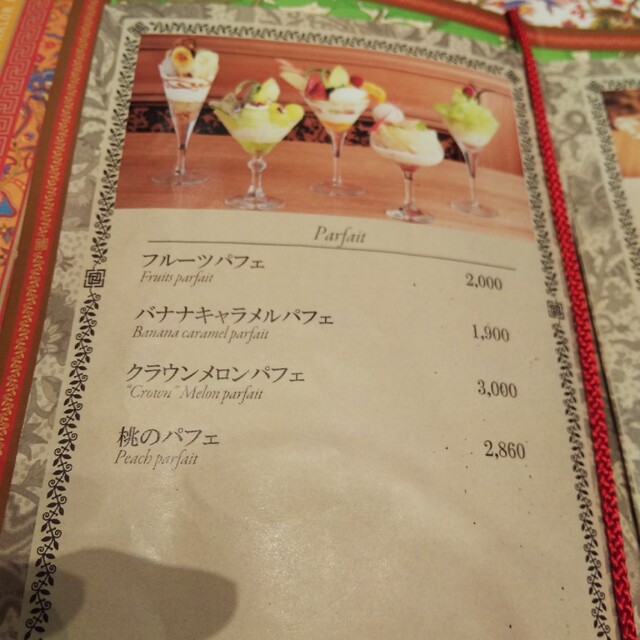 Parfait
フルーツパフェ
Fruits parfait
2,000
バナナキャラメルパフェ
Banana caramel parfait
1,900
クラウンメロンパフェ
"Crown" Melon parfait
3,000
桃のパフェ
Peach parfait
2,860